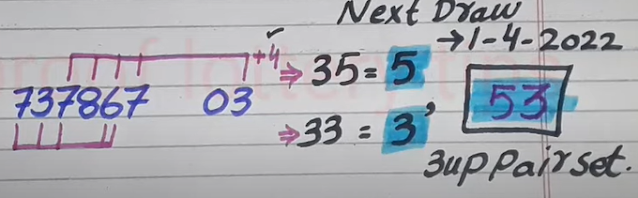 Next Draw
→1-4-2022
+4
737867 03
⇒ 35 = 5
⇒ 33 = 3,
53
3up Pair set.